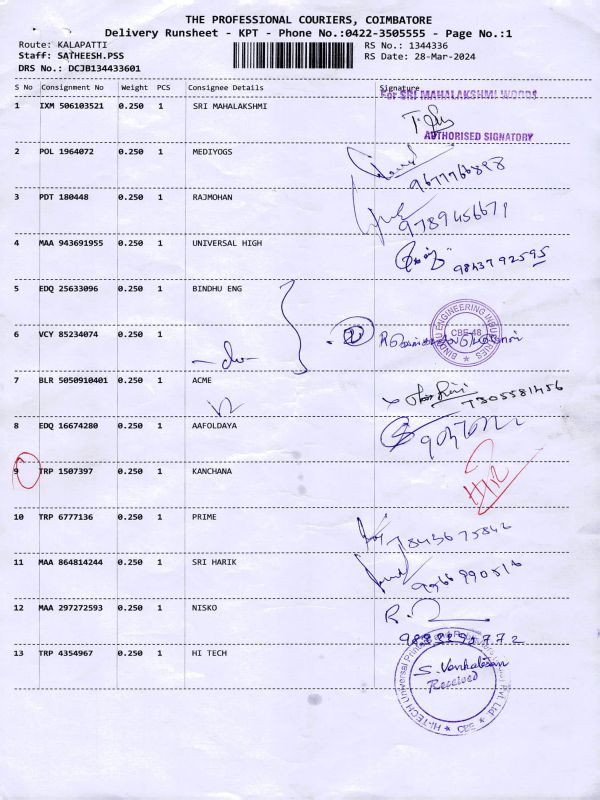 THE PROFESSIONAL COURIERS, COIMBATORE
Delivery Runsheet - KPT - Phone No.:0422-3505555 - Page No.:1
Route: KALAPATTI
Staff: SATHEESH.PSS
DRS No.: DCJB134433601
RS No.: 1344336
RS Date: 28-Mar-2024
S No Consignment No Weight PCS Consignee Details Signature
For SRI MAHALAKSHMI WOODS
1 IXM 506103521 0.250 1 SRI MAHALAKSHMI
AUTHORISED SIGNATORY
2 POL 1964072 0.250 1 MEDIYOGS
9677766898
3 PDT 180448 0.250 1 RAJMOHAN
9789456671
4 MAA 943691955 0.250 1 UNIVERSAL HIGH
9843792595
5 EDQ 25633096 0.250 1 BINDHU ENG
BINDHU ENGINEERING INDUSTRIES
CBE-48
6 VCY 85234074 0.250 1
-do-
7 BLR 5050910401 0.250 1 ACME
7305581456
8 EDQ 16674280 0.250 1 AAFOLDAYA
9 TRP 1507397 0.250 1 KANCHANA
10 TRP 6777136 0.250 1 PRIME
7843675842
11 MAA 864814244 0.250 1 SRI HARIK
9566990516
12 MAA 297272593 0.250 1 NISKO
13 TRP 4354967 0.250 1 HI TECH
S. Venkatesan
Received
HI-TECH Universal Pvt Ltd
CBE